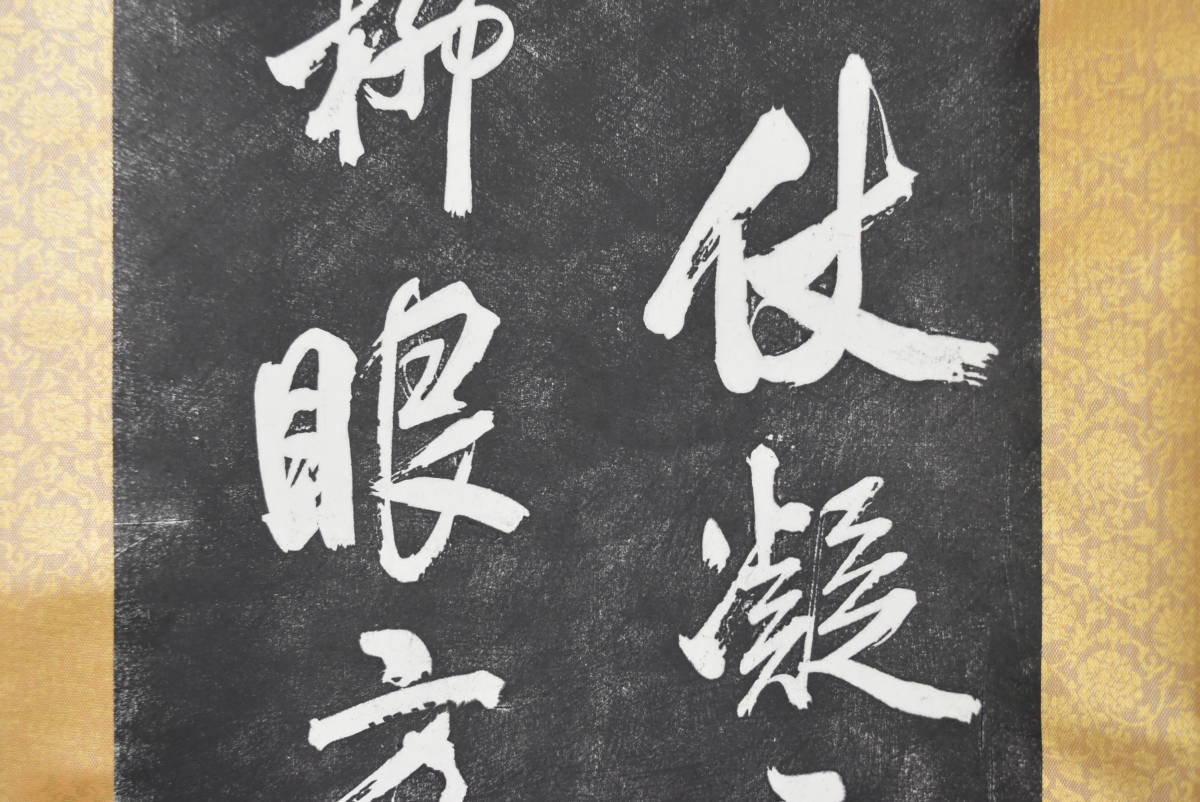 仗凝
柳眼方